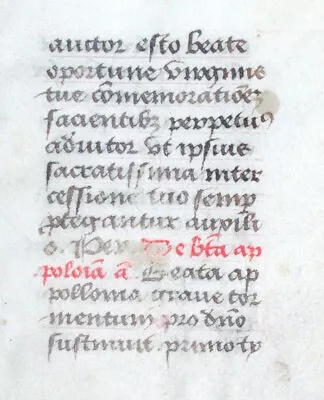 auctor esto beate
oportune virginis
tue cōmemorationēz
facientibꝫ perpetuꝰ
adiutor vt ipsius
sacratissima inter
cessione tuo semp
ꝓtegantur auxili
o. Per. De btā ap
poloiā ā. Beata ap
pollonia graue tor
mentum pro dño
sustinuit primo ty